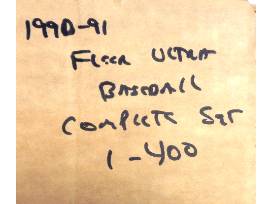 1990-91
FLEER ULTRA
BASEBALL
COMPLETE SET
1-400